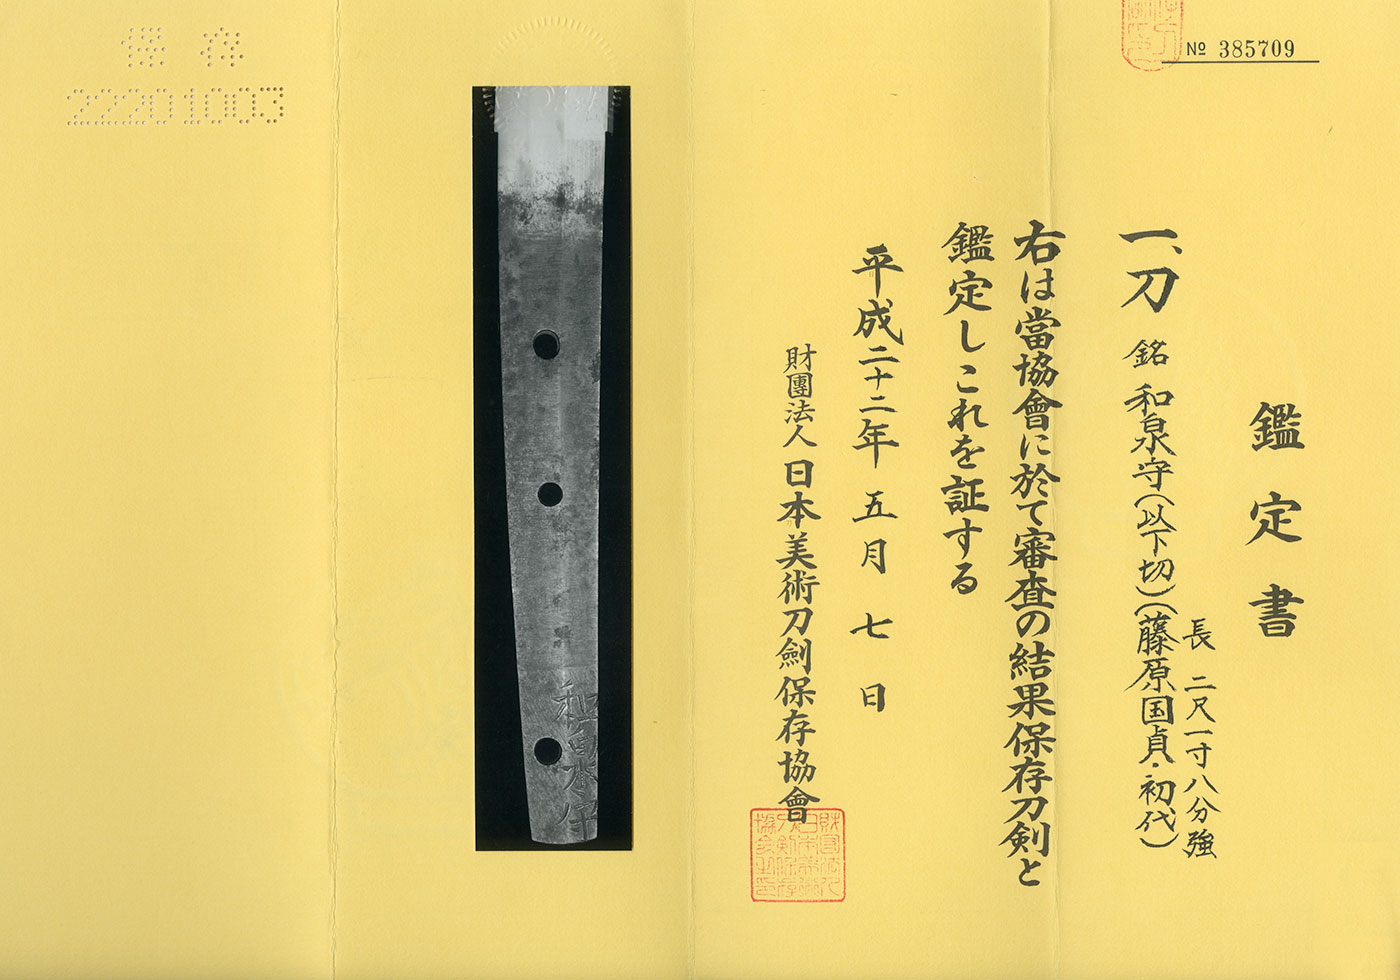 No 385709
鑑定書
一、刀 銘 和泉守(以下切)(藤原国貞・初代)
長 二尺一寸八分強
右は當協會に於て審査の結果保存刀剣と
鑑定しこれを証する
平成二十二年 五月 七日
財團法人 日本美術刀劍保存協會
保存
22201003